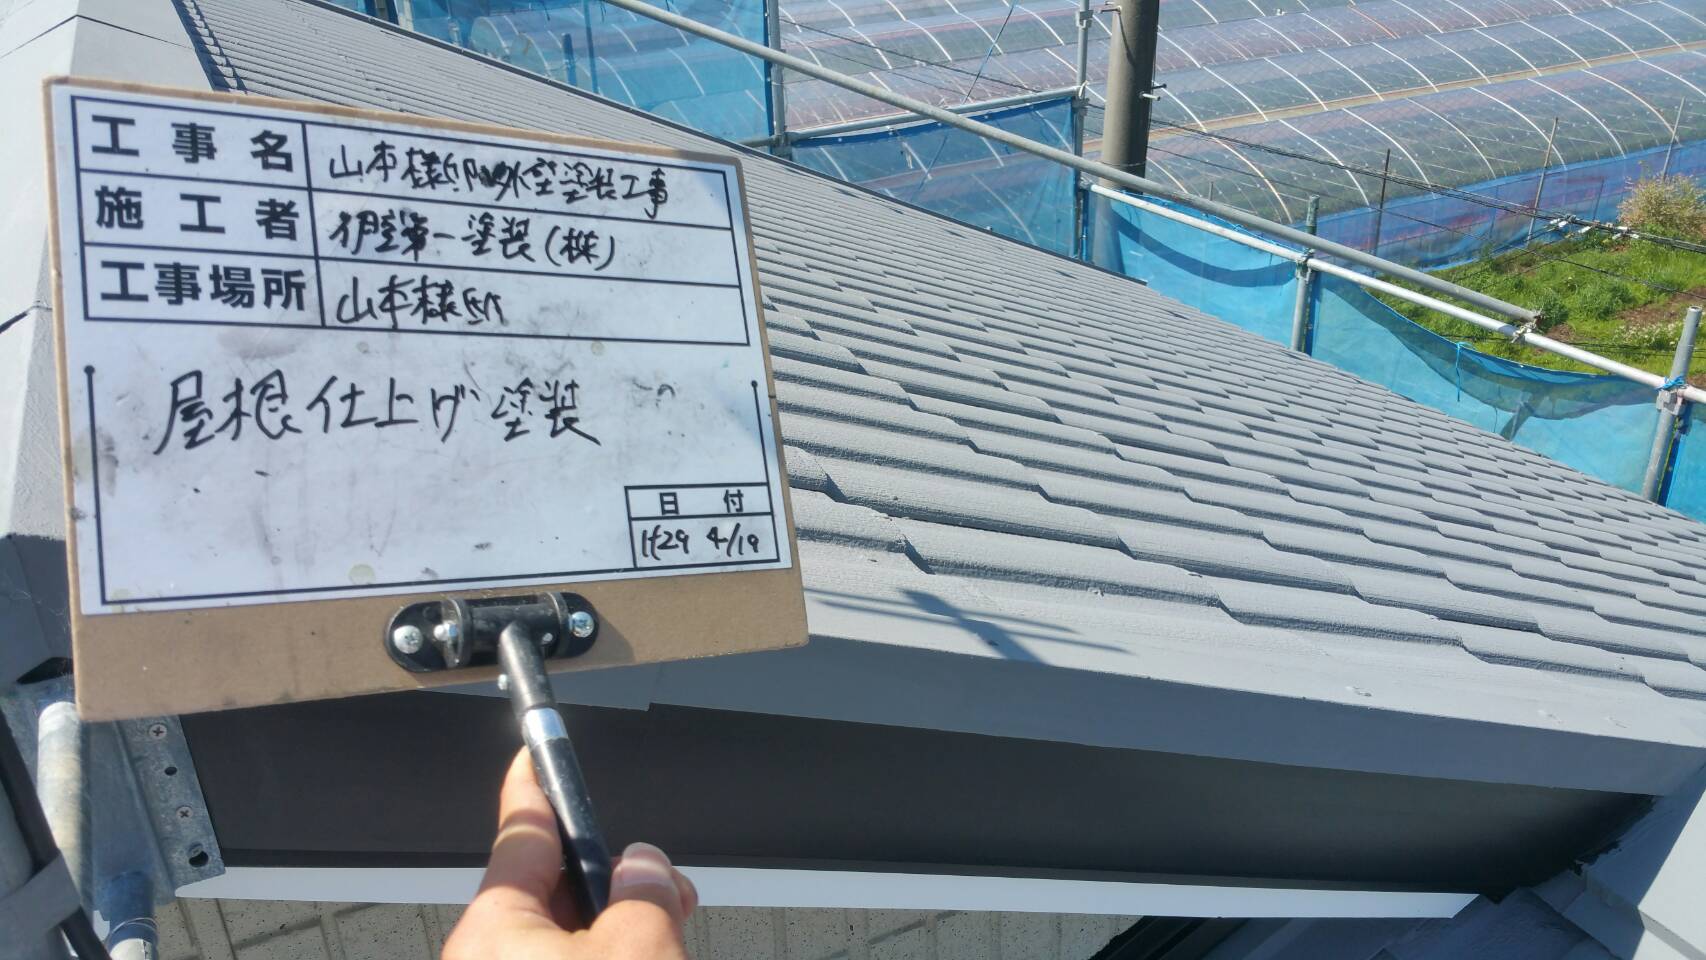 工事名 山本様邸外壁塗装工事
施工者 伊勢第一塗装(株)
工事場所 山本様邸
屋根仕上げ塗装
日付
H29 4/19